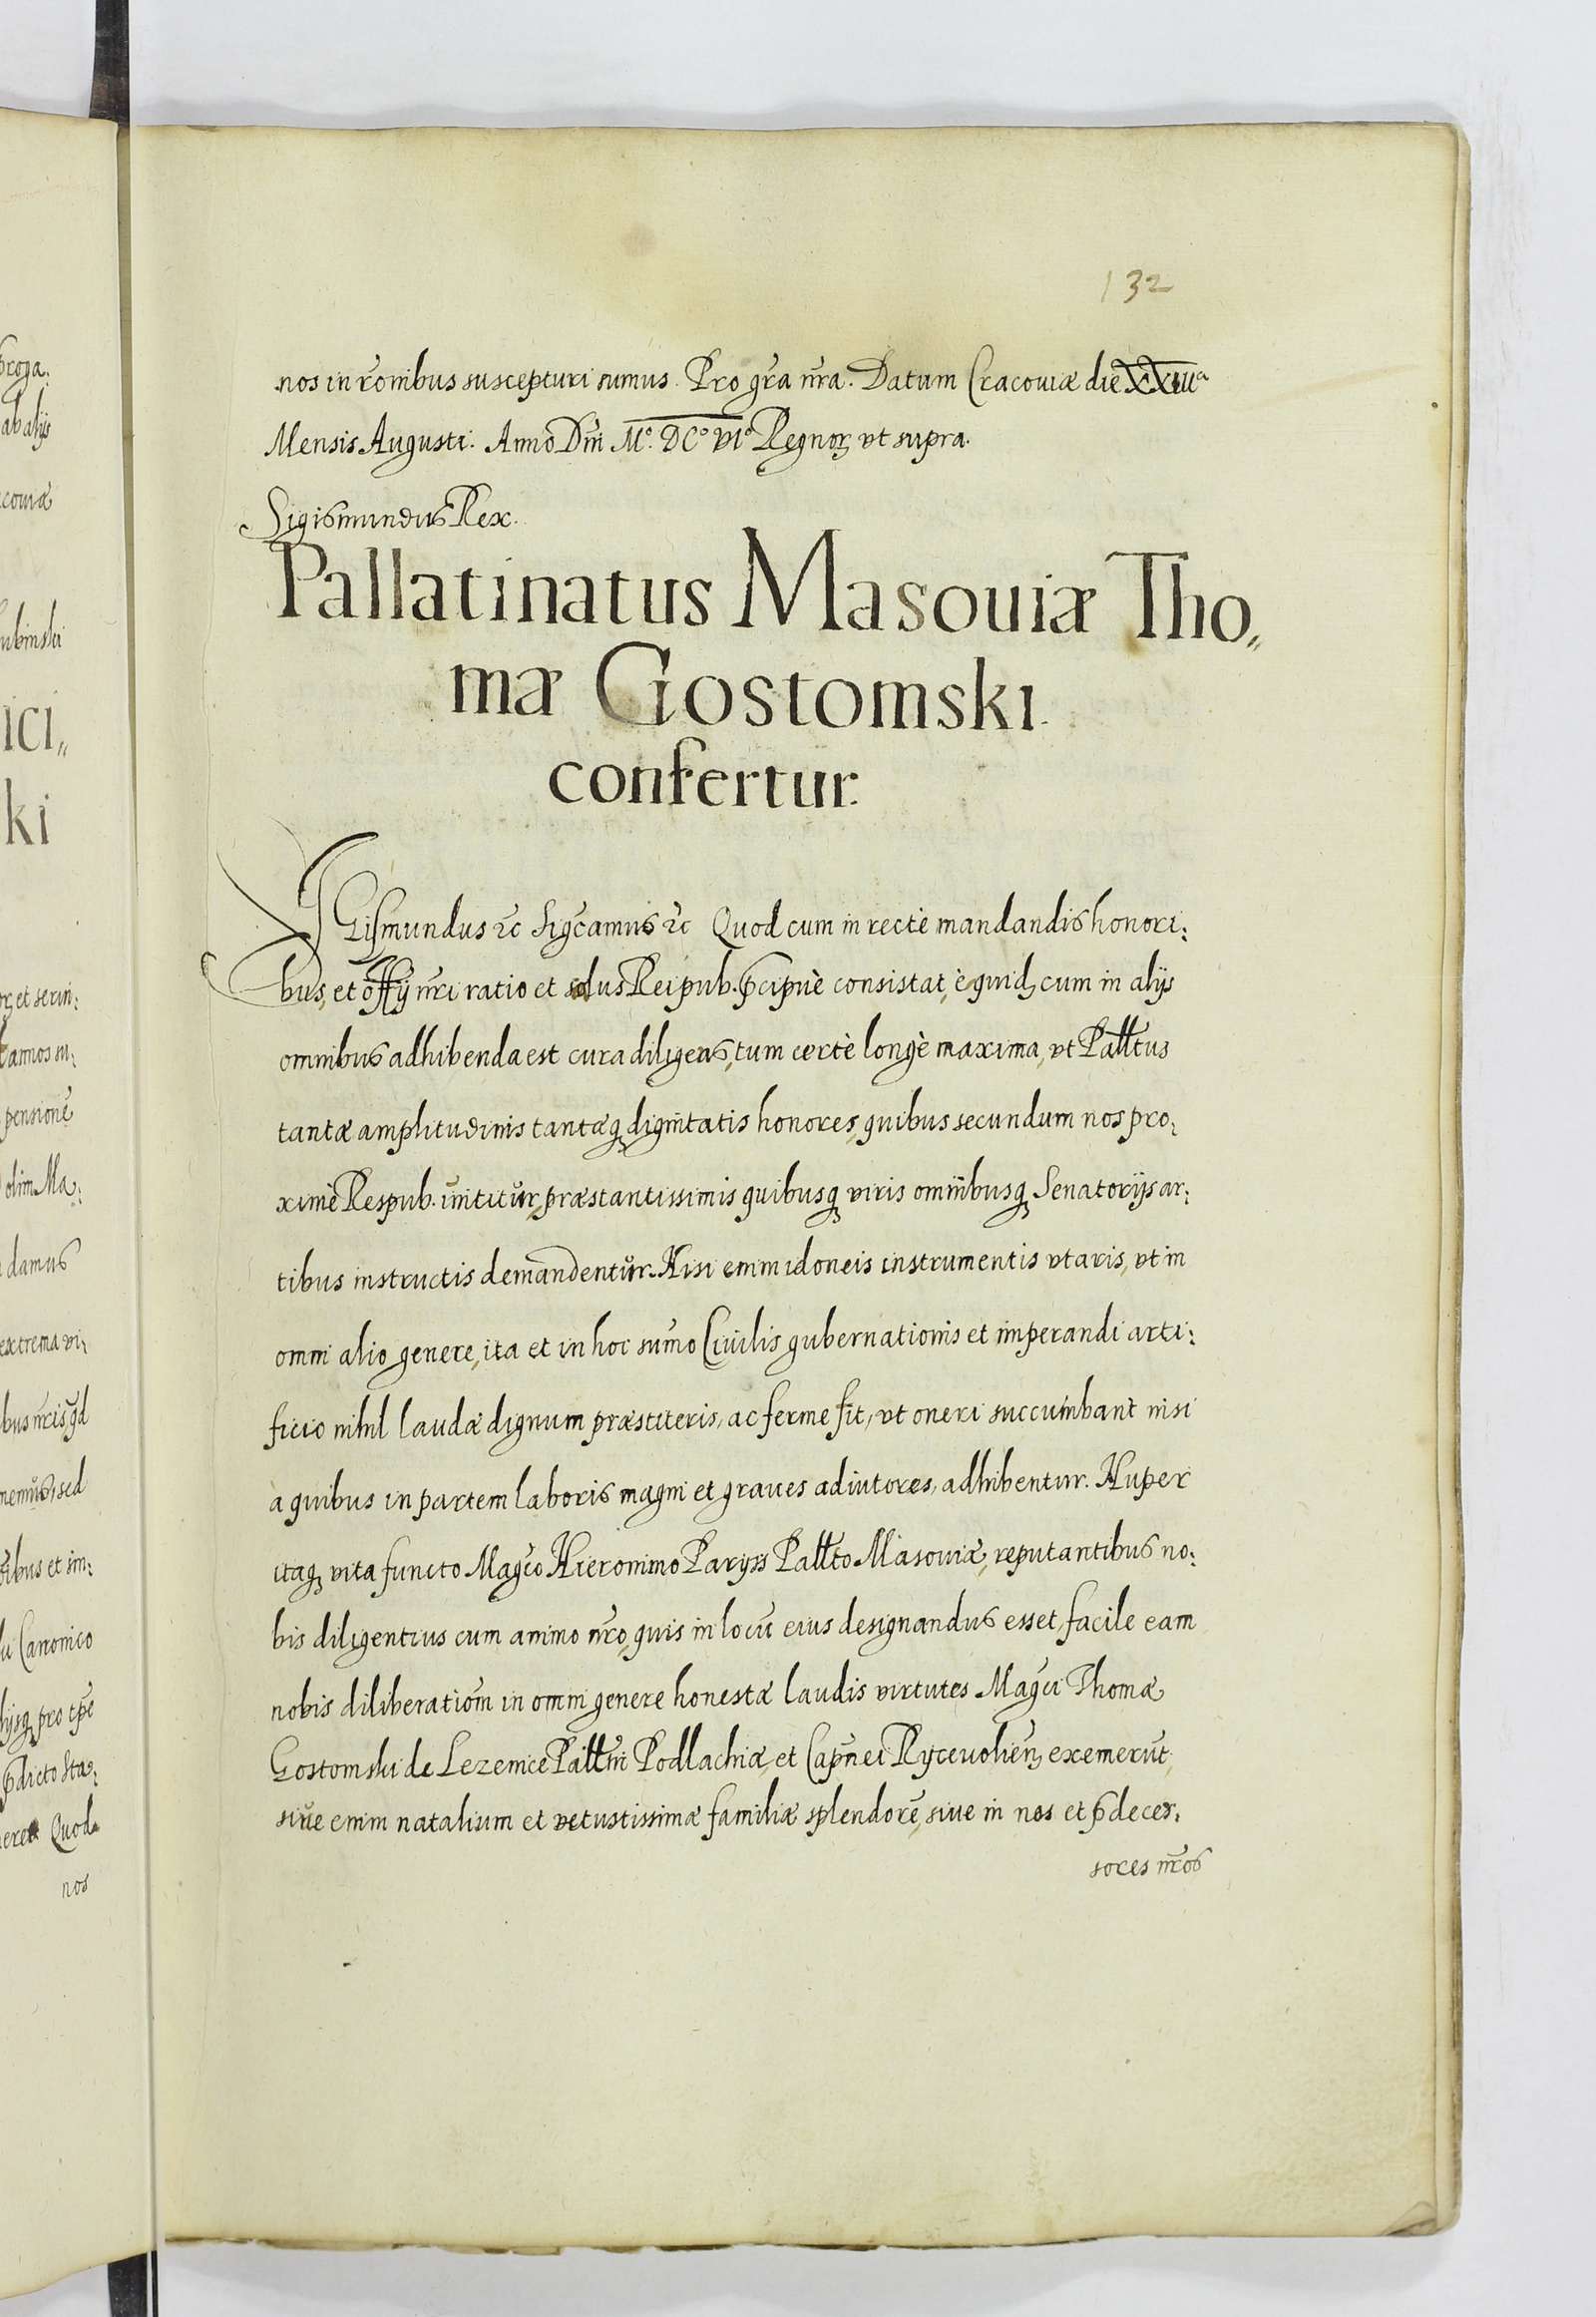 132
nos in rõnibus suscepturi sumus. Pro gr̃a nr̃a. Datum Cracouiæ die XXiiiᵃ
Mensis Augusti. Anno Dñi Mº. DCº VIº Regnoꝝ vt supra.
Sigismundus Rex.
Pallatinatus Masouiæ Tho„
mæ Gostomski.
confertur.
SGismundus ⁊c̃ Sigc̃amus ⁊c̃ Quod cum in rectè mandandis honori:
bus, et offij nr̃i ratio et salus Reipub. p̃cipuè consistat, equidꝫ cum in alijs
omnibus adhibenda est cura diligens, tum certè longè maxima, vt Pallt̃us
tantæ amplitudinis tantæqꝫ dignitatis honores, quibus secundum nos pro:
ximè Respub. innititur, præstantissimis quibusqꝫ viris omnibusqꝫ Senatorijs ar:
tibus instructis demandentur. Nisi enim idoneis instrumentis vtaris, vt in
omni alio genere, ita et in hoc sum̃o Ciuilis gubernationis et imperandi arti:
ficio nihil laudæ dignum præstiteris, ac ferme fit, vt oneri succumbant nisi
a quibus in partem laboris magni et graues adiutores, adhibentur. Nuper
itaqꝫ vita functo Magc̃o Hieronimo Parijss Pallt̃o Masouiæ, reputantibus no:
bis diligentius cum animo nr̃o, quis in locũ eius designandus esset, facile eam
nobis diliberatiom̃ in omni genere honestæ laudis virtutes Magc̃i Thomæ
Gostomski de Lezenice Pallt̃ni Podlachiæ, et Capñei Rÿcevolieñ, exemerũt,
siue enim natalium et vetustissimæ familiæ splendorẽ, siue in nos et p̃deces:
sores nr̃os
proga.
ab alijs
couiæ
ubinski
ici„
ki
et serui:
annos su:
pensionẽ
olim Ma:
damus
extrema vi:
sed
ibus et im:
Canonico
pro tp̃e
p̃dicto Sta:
Quod
nos